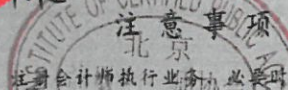 注意事项
INSTITUTE OF CERTIFIED PUBLIC A
北京
注册会计师执行业务，必要时